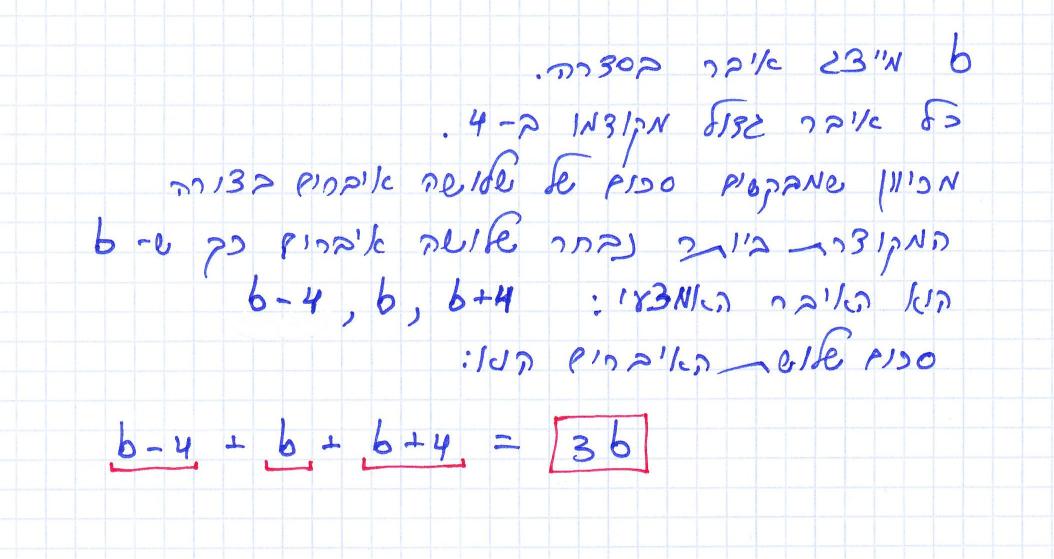 b מייצג איבר בסדרה.
כל איבר גדול מקודמו ב-4.
מכיוון שמבקשים סכום של שלושה איברים בצורה
המקוצרת ביותר נבחר שלושה איברים כך ש-b
הוא האיבר האמצעי: b-4, b, b+4
סכום שלושת האיברים הוא:
b-4 + b + b+4 = 3b